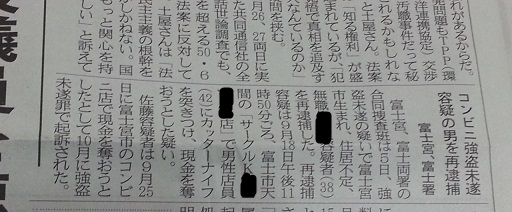 コンビニ強盗未遂
容疑の男を再逮捕
富士宮、富士署
富士宮、富士両署の
合同捜査班は5日、強
盗未遂の疑いで富士宮
市生まれ、住居不定、
無職 容疑者(38)
を再逮捕した。再逮捕
容疑は9月18日午後11
時50分ごろ、富士市天
間の「サークルK
店」で男性店員
(42)にカッターナイフ
を突きつけ、現金を奪
おうとした疑い。
佐藤容疑者は9月25
日に富士宮市のコンビ
ニ店で現金を奪おうと
したとして10月に強盗
未遂罪で起訴された。
れがあるからだ。
発問題もTPP(環
洋連携協定)交渉
汚職事件だって秘
されるかもしれな
と土屋さん。法案
「知る権利」が盛
まれているが、「犯
倍で真相を追及す
なんているのか」
問を挟む。
月26、27両日に実
た共同通信社の全
話世論調査でも、
を超える50・6
法案に反対して
土屋さんは「法
民主主義の根幹を
しかねない。国
もっと関心を持
しい」と訴えて
議員